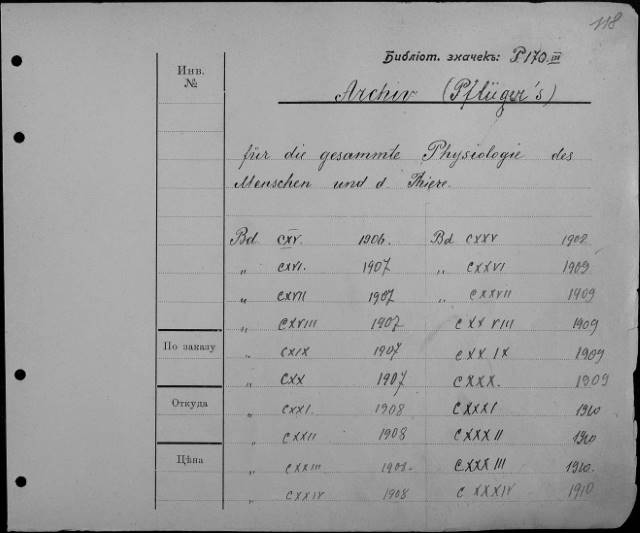 118
Библіот. значекъ: P170.III
Инв.
№
Archiv (Pflüger's)
für die gesammte Physiologie des
Menschen und d. Thiere.
Bd CXV. 1906. Bd CXXV 1908
„ CXVI. 1907 „ CXXVI 1909
„ CXVII 1907 „ CXXVII 1909
„ CXVIII 1907 CXXVIII 1909
По заказу
„ CXIX 1907 CXXIX 1909
„ CXX 1907 CXXX. 1909
Откуда
„ CXXI. 1908 CXXXI 1910
„ CXXII 1908 CXXXII 1910
Цѣна
„ CXXIII 1908. CXXXIII 1910.
„ CXXIV 1908 CXXXIV 1910